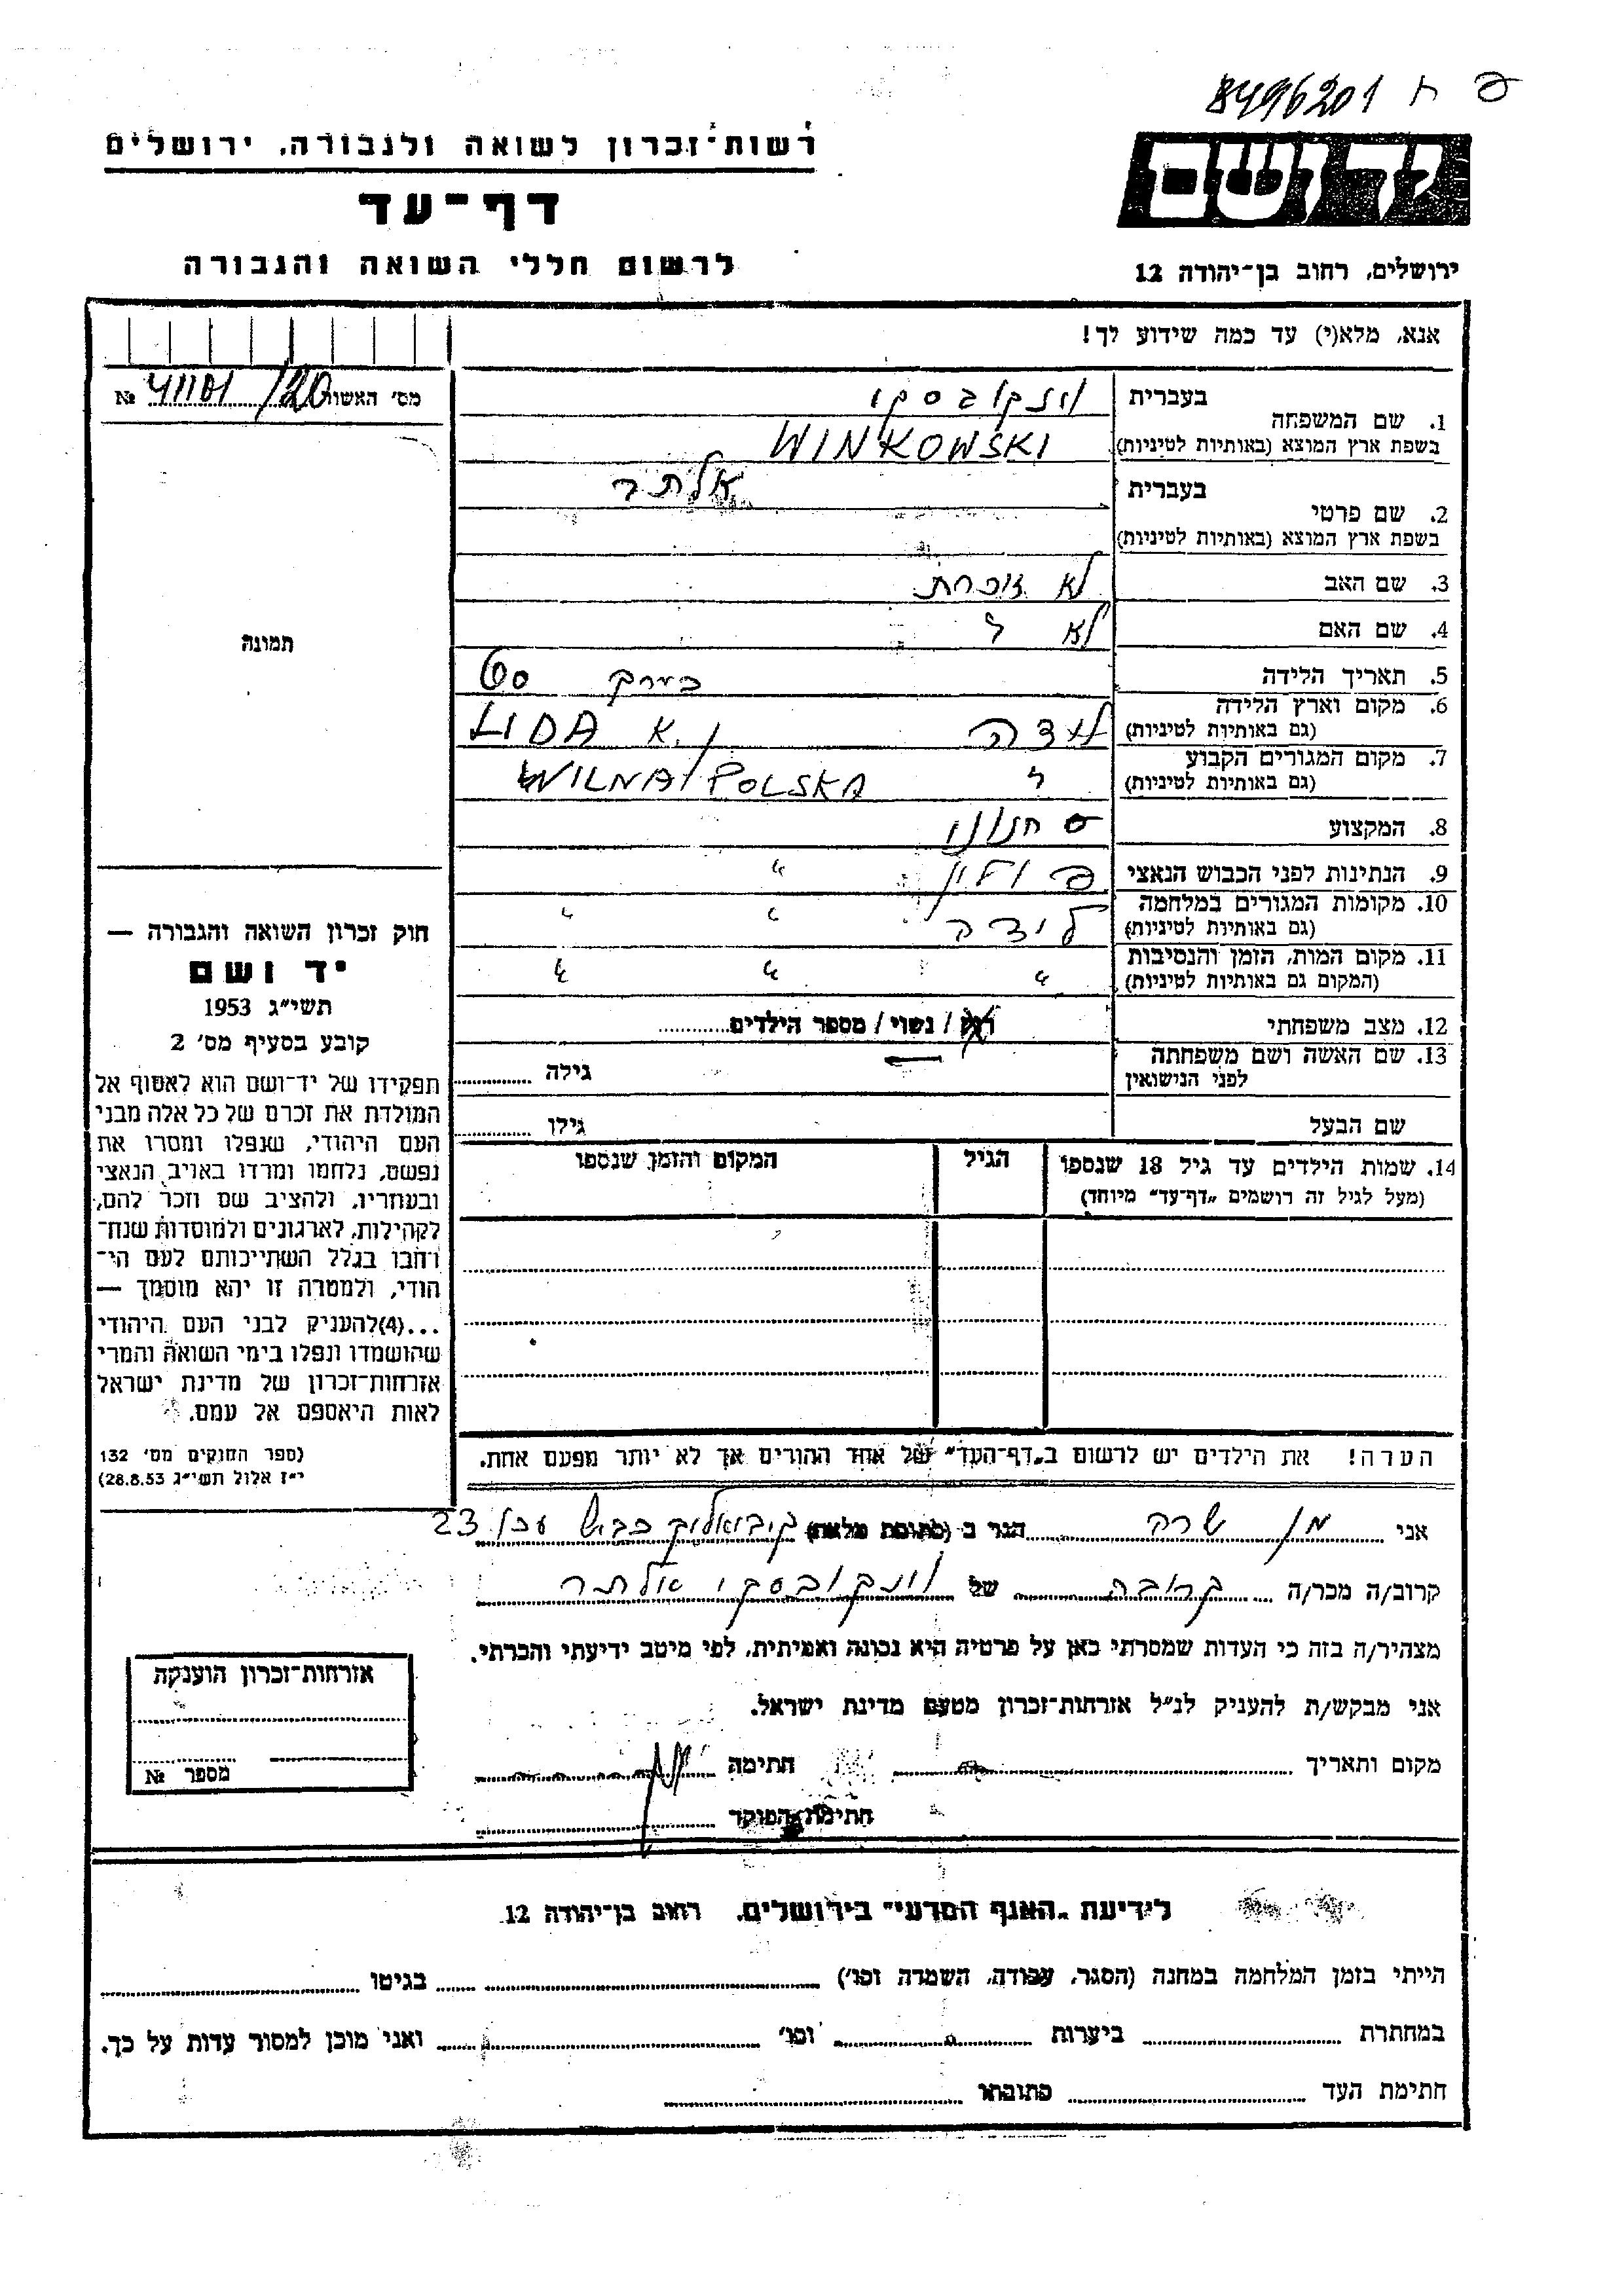 8496201 ח פ
יד ושם
רשות־זכרון לשואה ולגבורה, ירושלים
דף־עד
לרשום חללי השואה והגבורה
ירושלים, רחוב בן־יהודה 12
אנא, מלא(י) עד כמה שידוע לך!
מס׳ האשה № 41101/20
1. שם המשפחה
בעברית וינקובסקי
בשפת ארץ המוצא (באותיות לטיניות) WINKOWSKI
2. שם פרטי
בעברית אלתר
בשפת ארץ המוצא (באותיות לטיניות)
3. שם האב לא זוכרת
4. שם האם לא ל
5. תאריך הלידה בערך 60
6. מקום וארץ הלידה
(גם באותיות לטיניות) לידה LIDA K.
7. מקום המגורים הקבוע
(גם באותיות לטיניות) ל WILNA/POLSKA
8. המקצוע
9. הנתינות לפני הכבוש הנאצי פולין "
10. מקומות המגורים במלחמה
(גם באותיות לטיניות) לידה " "
11. מקום המות, הזמן והנסיבות
(המקום גם באותיות לטיניות) " " "
12. מצב משפחתי רווק / נשוי / מספר הילדים
13. שם האשה ושם משפחתה
לפני הנישואין גילה
שם הבעל גילו
14. שמות הילדים עד גיל 18 שנספו הגיל המקום והזמן שנספו
(מעל לגיל זה רושמים „דף־עד״ מיוחד)
הערה! את הילדים יש לרשום ב„דף־העד״ של אחד ההורים אך לא יותר מפעם אחת.
תמונה
חוק זכרון השואה והגבורה —
יד ושם
תשי״ג 1953
קובע בסעיף מס׳ 2
תפקידו של יד־ושם הוא לאסוף אל
המולדת את זכרם של כל אלה מבני
העם היהודי, שנפלו ומסרו את
נפשם, נלחמו ומרדו באויב הנאצי
ובעוזריו, ולהציב שם וזכר להם,
לקהילות, לארגונים ולמוסדות שנח־
רבו בגלל השתייכותם לעם הי־
הודי, ולמטרה זו יהא מוסמך —
...(4)להעניק לבני העם היהודי
שהושמדו ונפלו בימי השואה והמרי
אזרחות־זכרון של מדינת ישראל
לאות היאספם אל עמם.
(ספר החוקים מס׳ 132
י״ז אלול תשי״ג 28.8.53)
אני מן שרה הגר ב (כתובת מלאה) 23
קרוב/ה מכר/ה קרובה של וינקובסקי אלתר
מצהיר/ה בזה כי העדות שמסרתי כאן על פרטיה היא נכונה ואמיתית, לפי מיטב ידיעתי והכרתי.
אני מבקש/ת להעניק לנ״ל אזרחות־זכרון מטעם מדינת ישראל.
מקום ותאריך חתימה
חתימת הפוקד
אזרחות־זכרון הוענקה
מספר №
לידיעת „האגף המדעי״ בירושלים, רחוב בן־יהודה 12
הייתי בזמן המלחמה במחנה (הסגר, עבודה, השמדה וכו׳) בגיטו
במחתרת ביערות וכו׳ ואני מוכן למסור עדות על כך.
חתימת העד כתובתו